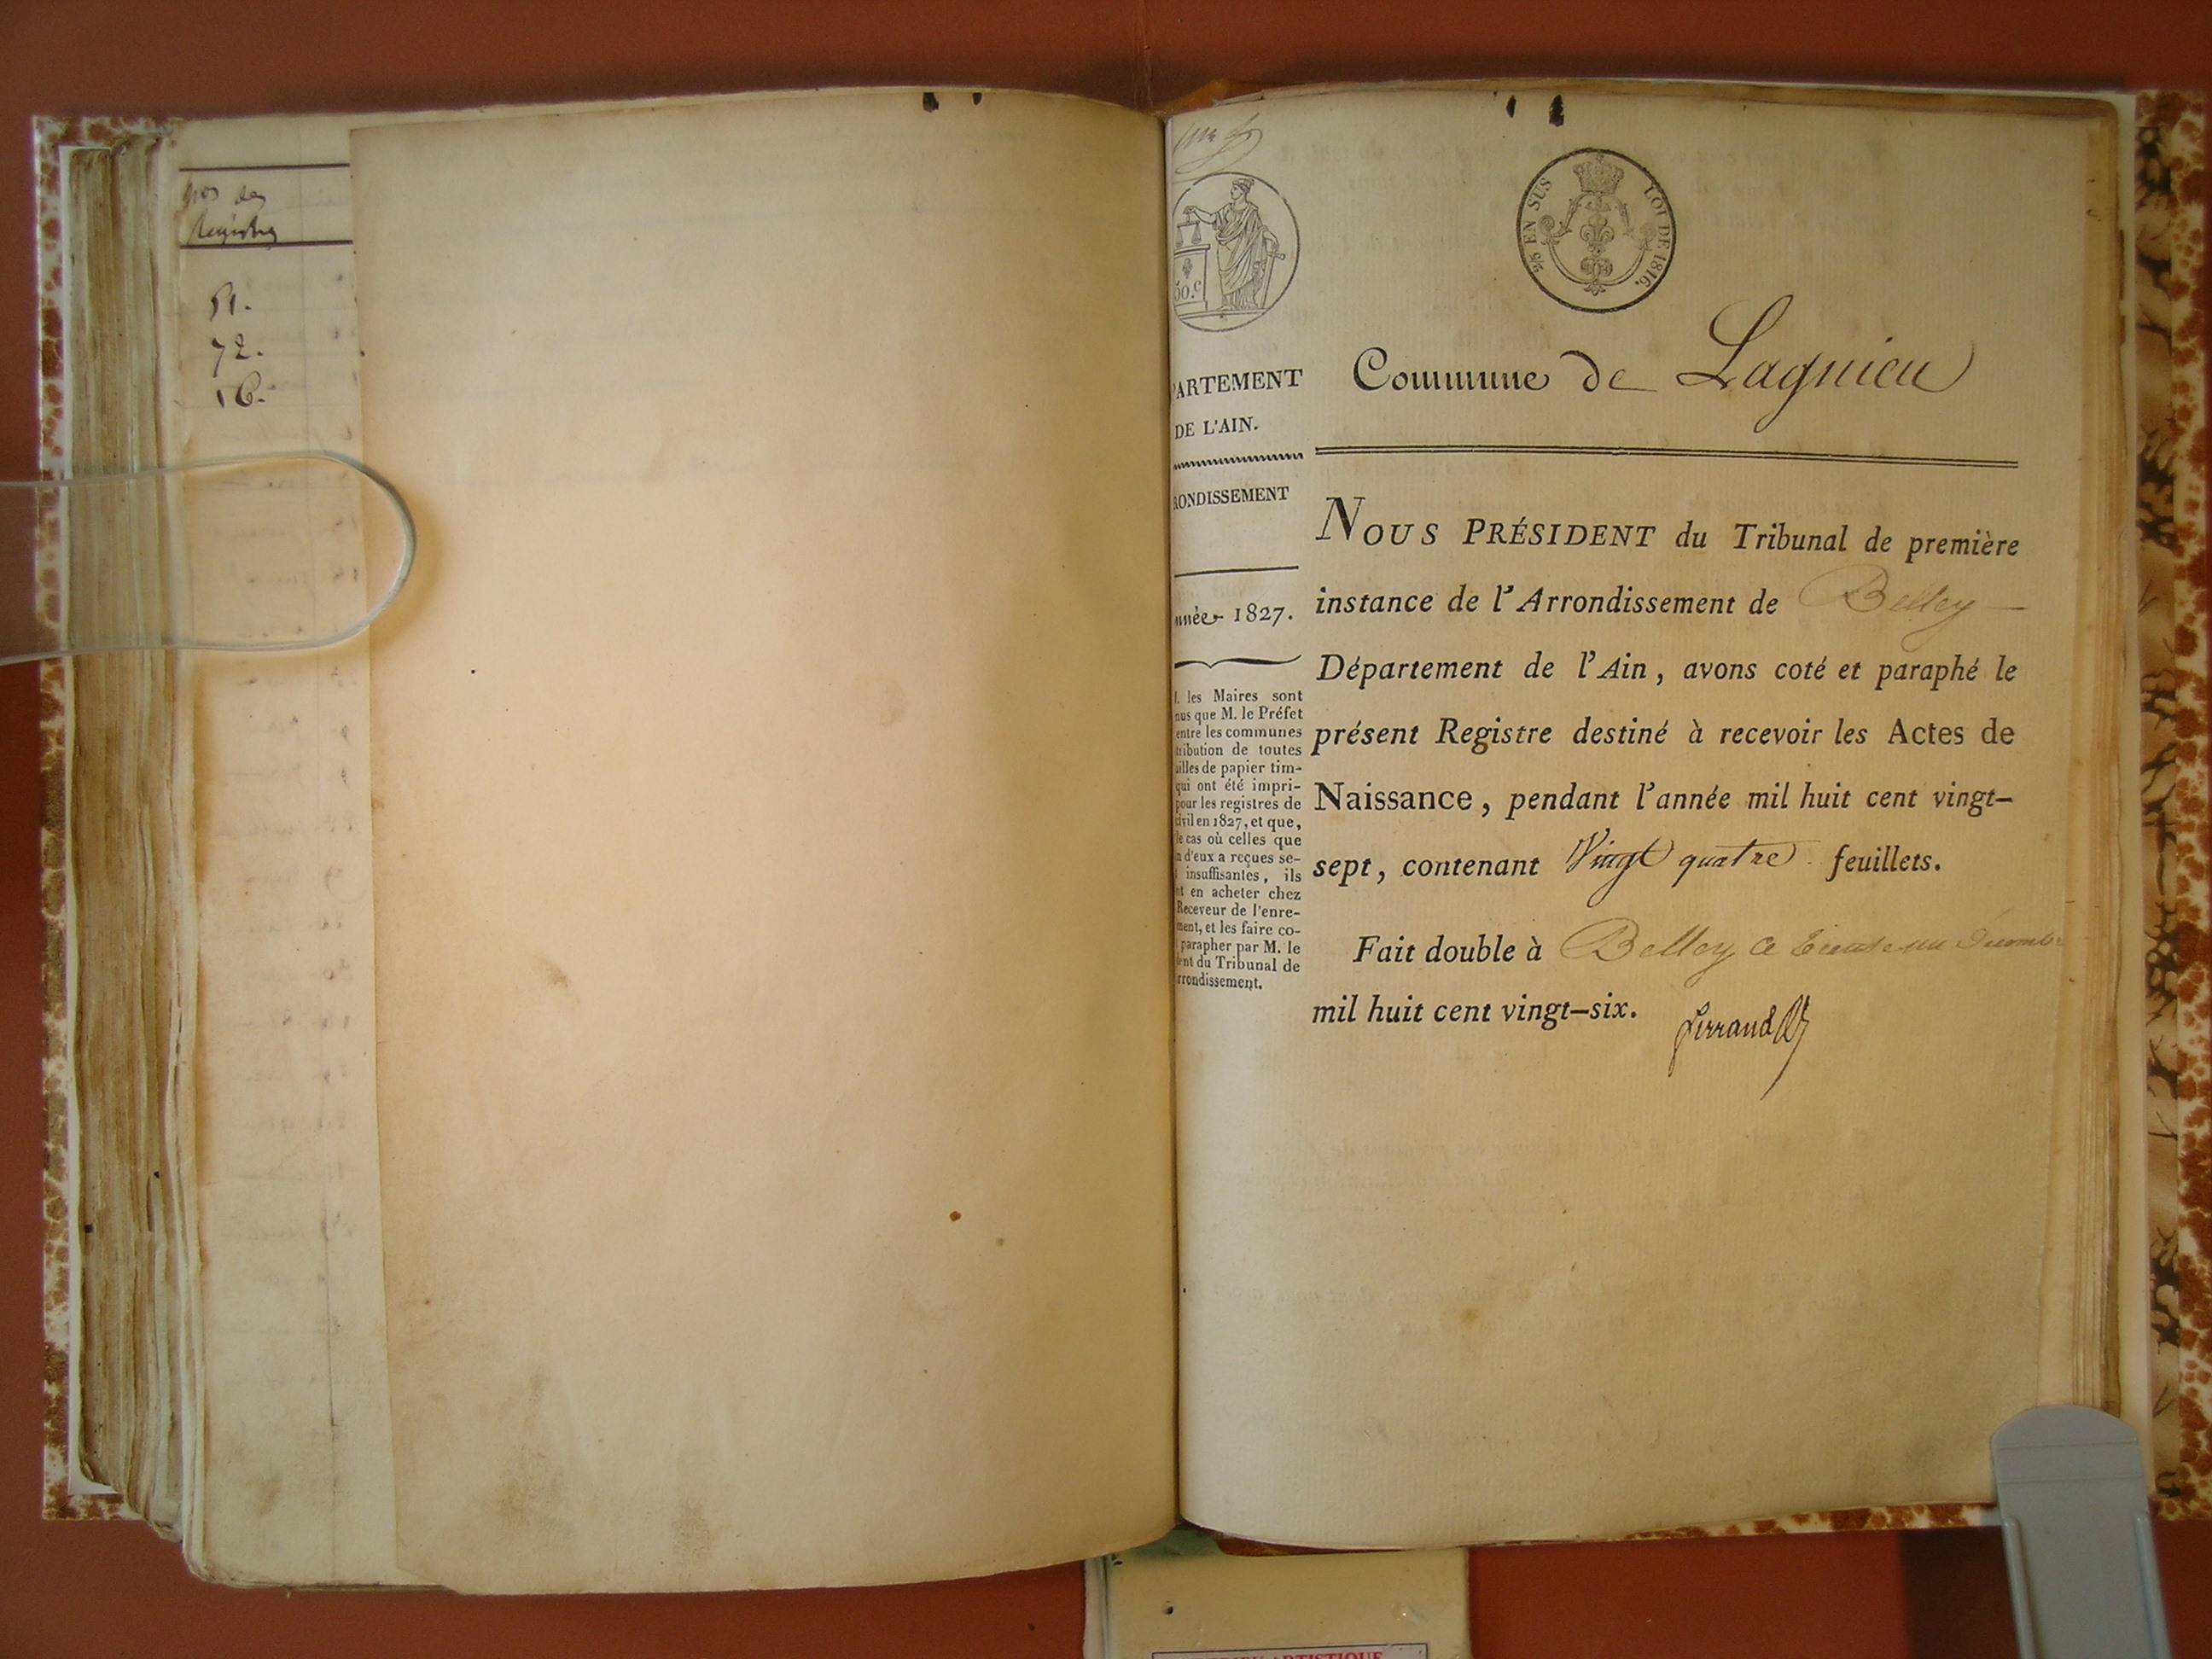 Nos des
Registres
51.
72.
16.
50.c
2/5 EN SUS LOI DE 1816.
PARTEMENT
DE L'AIN.
RONDISSEMENT
nnée 1827.
les Maires sont
nus que M. le Préfet
entre les communes
tribution de toutes
uilles de papier tim-
qui ont été impri-
pour les registres de
civil en 1827, et que,
le cas où celles que
n d'eux a reçues se-
insuffisantes, ils
nt en acheter chez
Receveur de l'enre-
ment, et les faire co-
parapher par M. le
dent du Tribunal de
rrondissement.
Commune de Lagnieu
NOUS PRÉSIDENT du Tribunal de première
instance de l'Arrondissement de Belley
Département de l'Ain, avons coté et paraphé le
présent Registre destiné à recevoir les Actes de
Naissance, pendant l'année mil huit cent vingt-
sept, contenant Vingt quatre feuillets.
Fait double à Belley ce trente un Décembre
mil huit cent vingt-six.
ARTISTIQUE